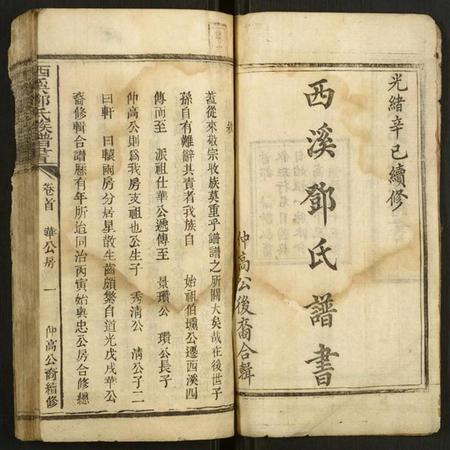 光緒辛巳續修
西溪鄧氏譜書
仲高公後裔合輯
蓋從來敬宗收族莫重乎譜譜之所關大矣哉在後世子
孫自有難辭其責者我族自　始祖伯壎公遷西溪四
傳而至　派祖仕華公遞傳至　景瓚公　瓚公長子
仲高公則為我房支祖也公生子　秀清公　清公子二
曰軒　曰轅兩房分居星散生齒頗繁自道光戊戌華公
裔修輯合譜歷有年所迨同治丙寅始與忠公房合修總
西溪鄧氏族譜書 卷首　華公房　一　仲高公裔續修